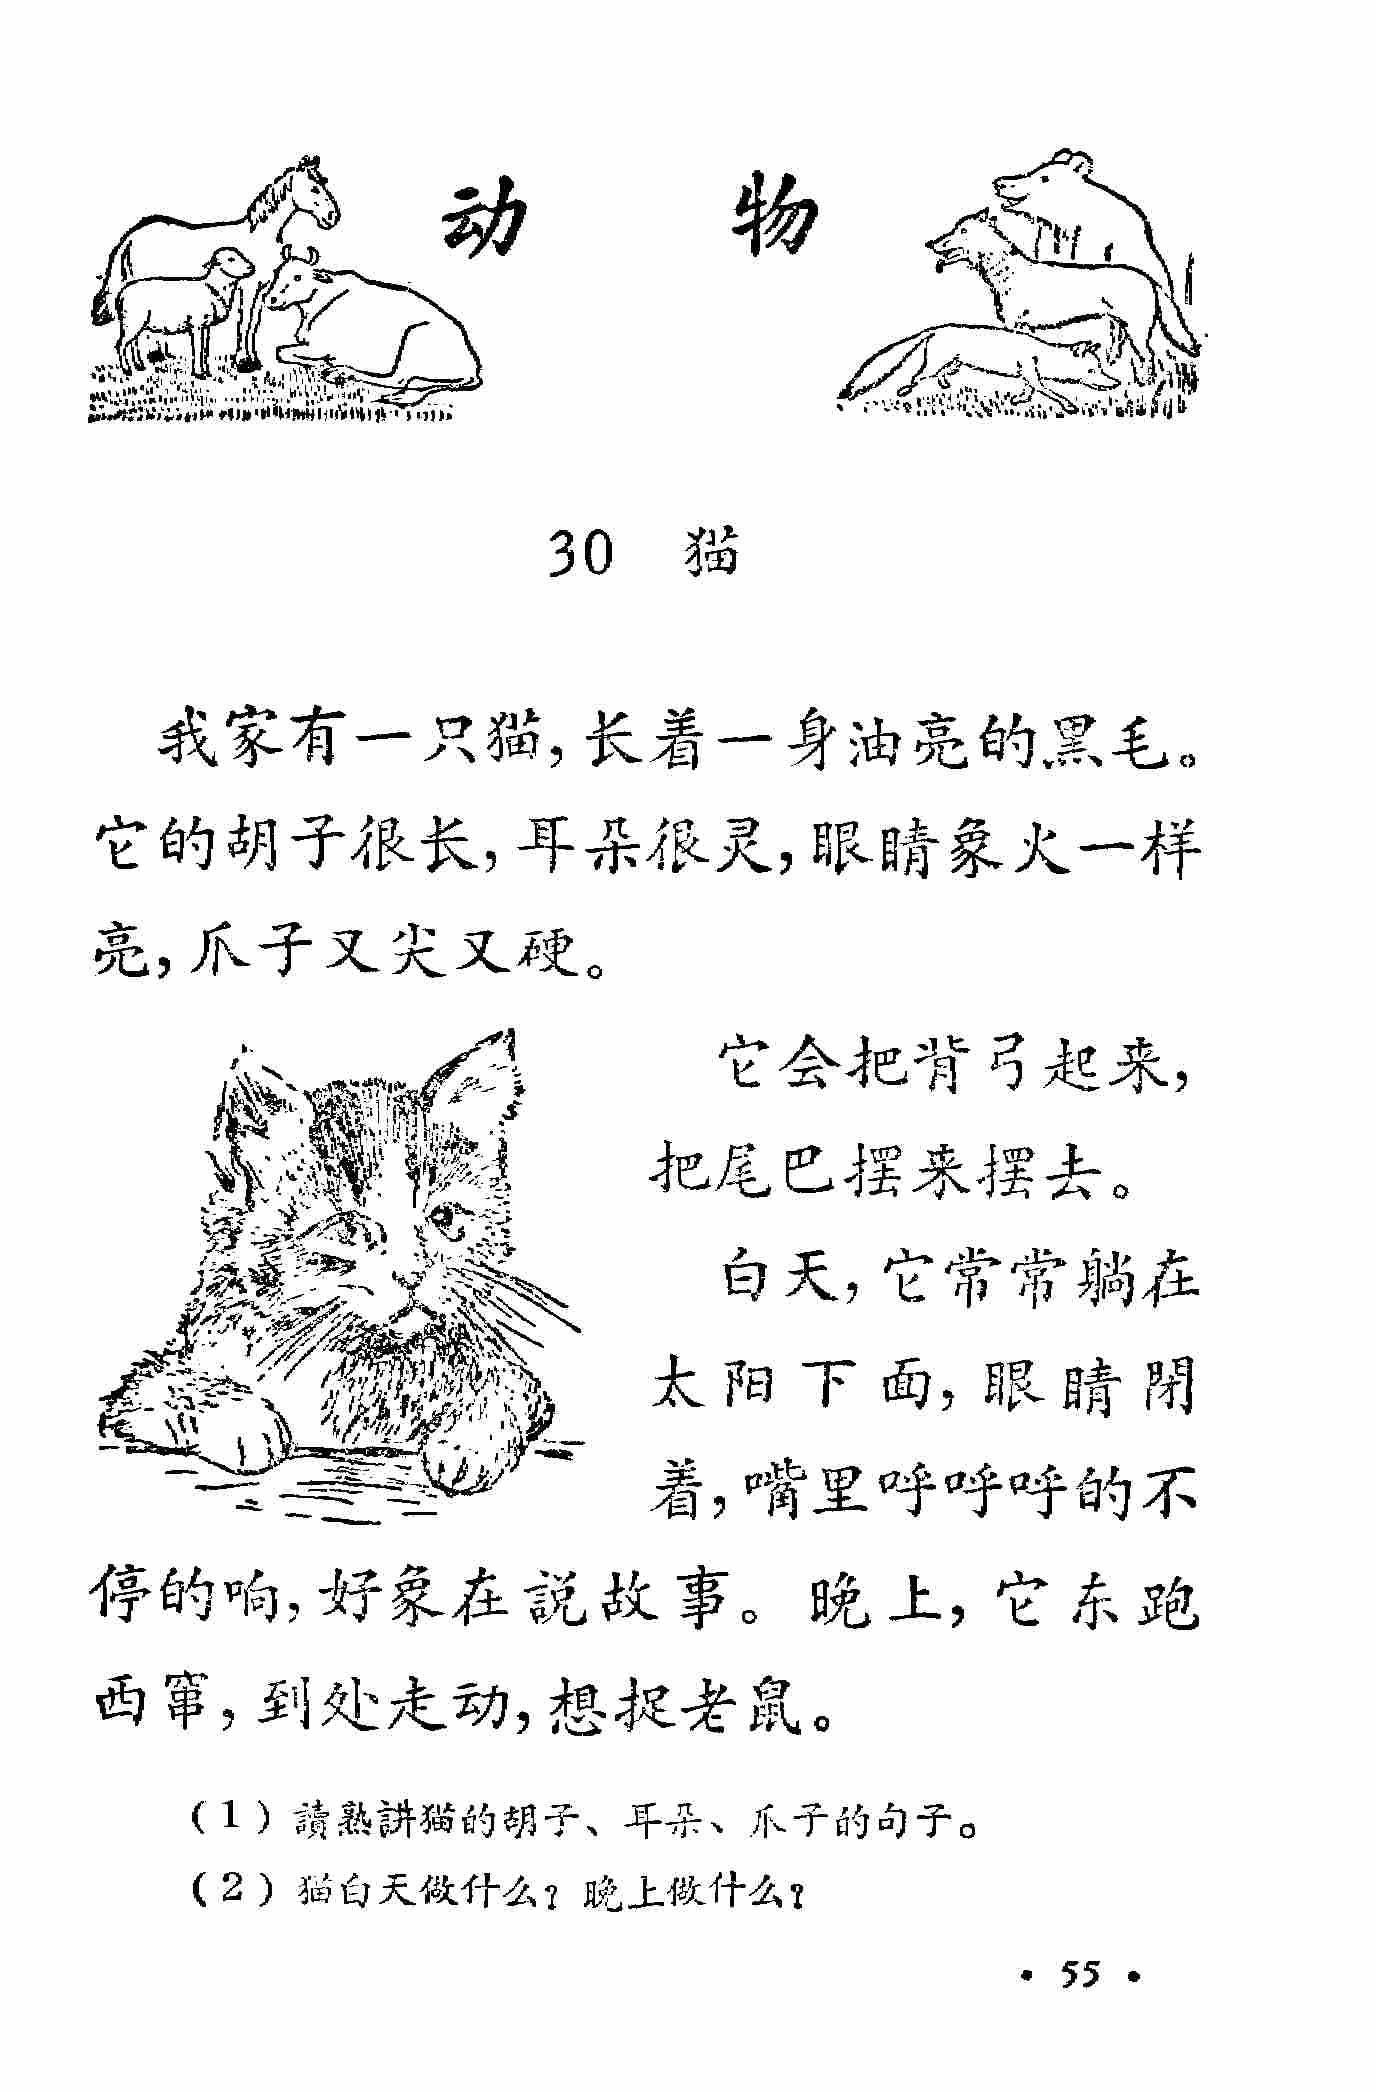 动 物
30 猫
我家有一只猫，长着一身油亮的黑毛。
它的胡子很长，耳朵很灵，眼睛象火一样
亮，爪子又尖又硬。
它会把背弓起来，
把尾巴摆来摆去。
白天，它常常躺在
太阳下面，眼睛閉
着，嘴里呼呼呼的不
停的响，好象在説故事。晚上，它东跑
西窜，到处走动，想捉老鼠。
（1）讀熟讲猫的胡子、耳朵、爪子的句子。
（2）猫白天做什么？晚上做什么？
• 55 •